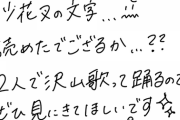 ツ花又の文字...
読めたでござるか...??
2人で沢山歌って踊るので
ぜひ見にきてほしいです☆